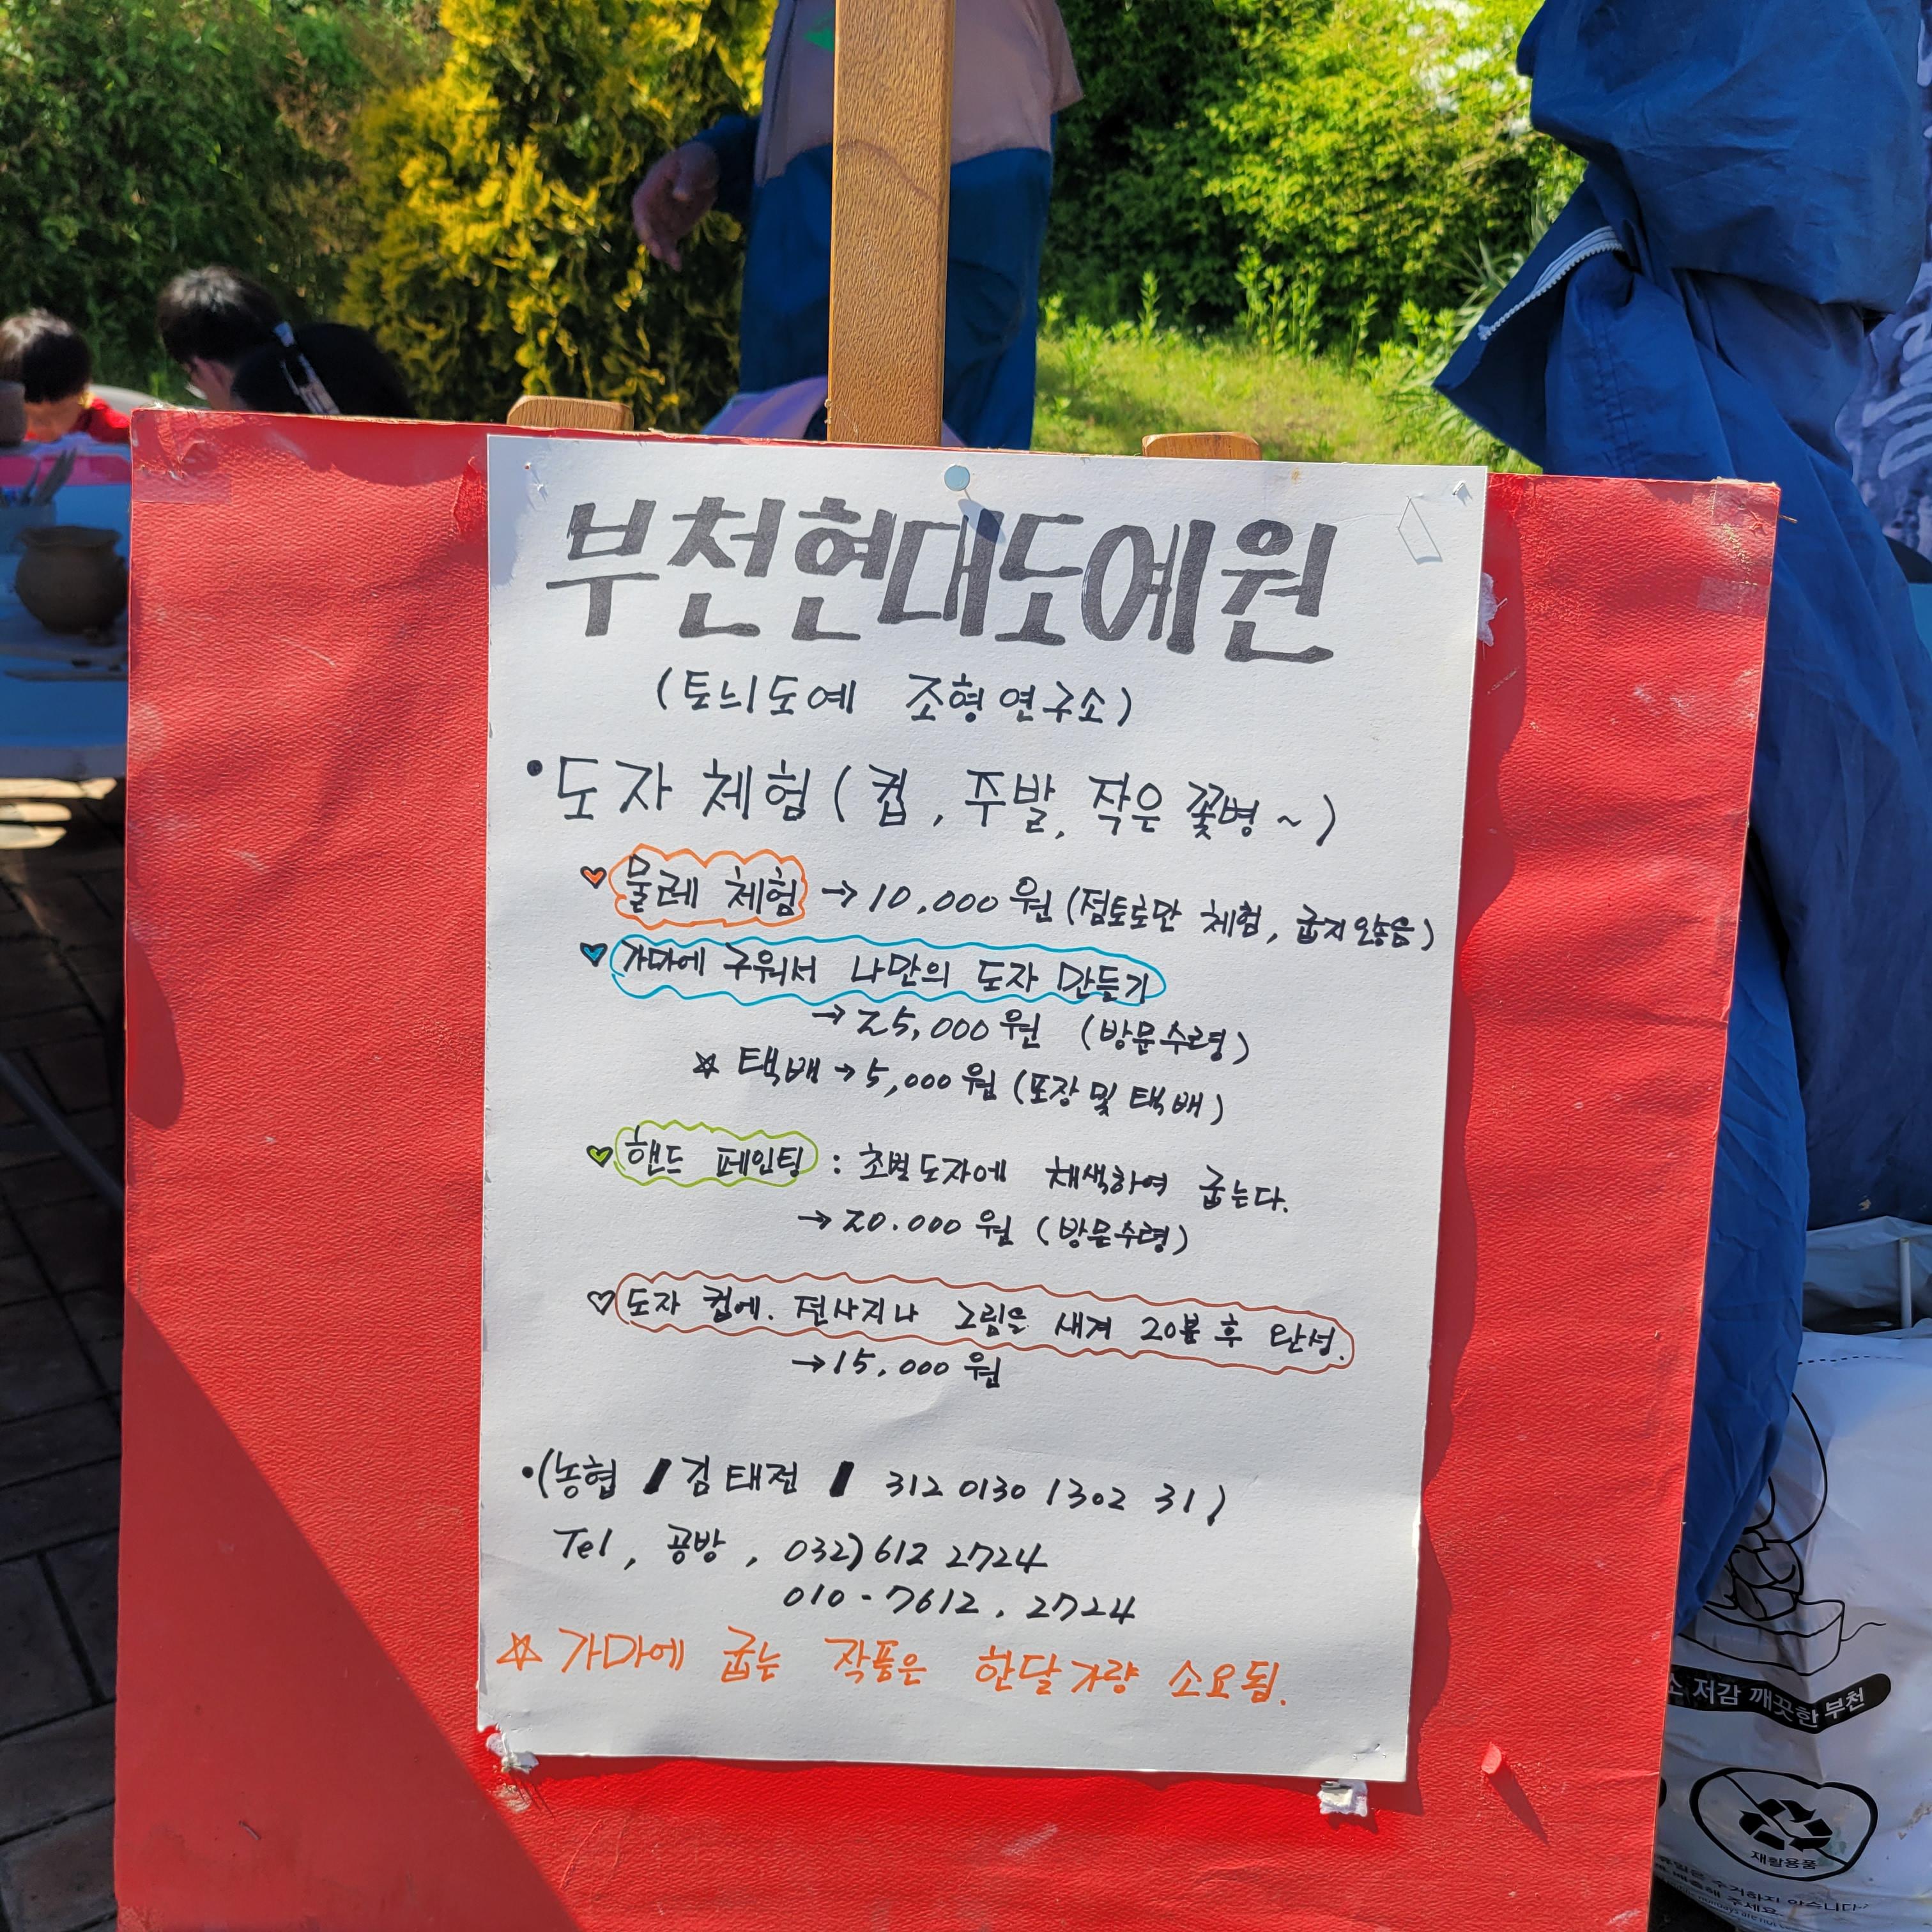 부천현대도예원
(토늬도예 조형연구소)
• 도자 체험 ( 컵 , 주발, 작은 꽃병 ~ )
♥ 물레 체험 → 10,000 원 (점토로만 체험, 굽지않음)
♥ 가마에 구워서 나만의 도자 만들기
→ 25,000 원 (방문수령)
☆ 택배 → 5,000 원 (포장 및 택배)
♥ 핸드 페인팅 : 초벌도자에 채색하여 굽는다.
→ 20.000 원 (방문수령)
♡ 도자 컵에. 전사지나 그림을 새겨 20분 후 완성.
→ 15,000 원
• (농협 / 김태전 / 312 0130 1302 31)
Tel , 공방 , 032) 612 2724
010 - 7612 . 2724
☆ 가마에 굽는 작품은 한달가량 소요됨.
저감 깨끗한 부천
재활용품
수거하지 않습니다
주세요